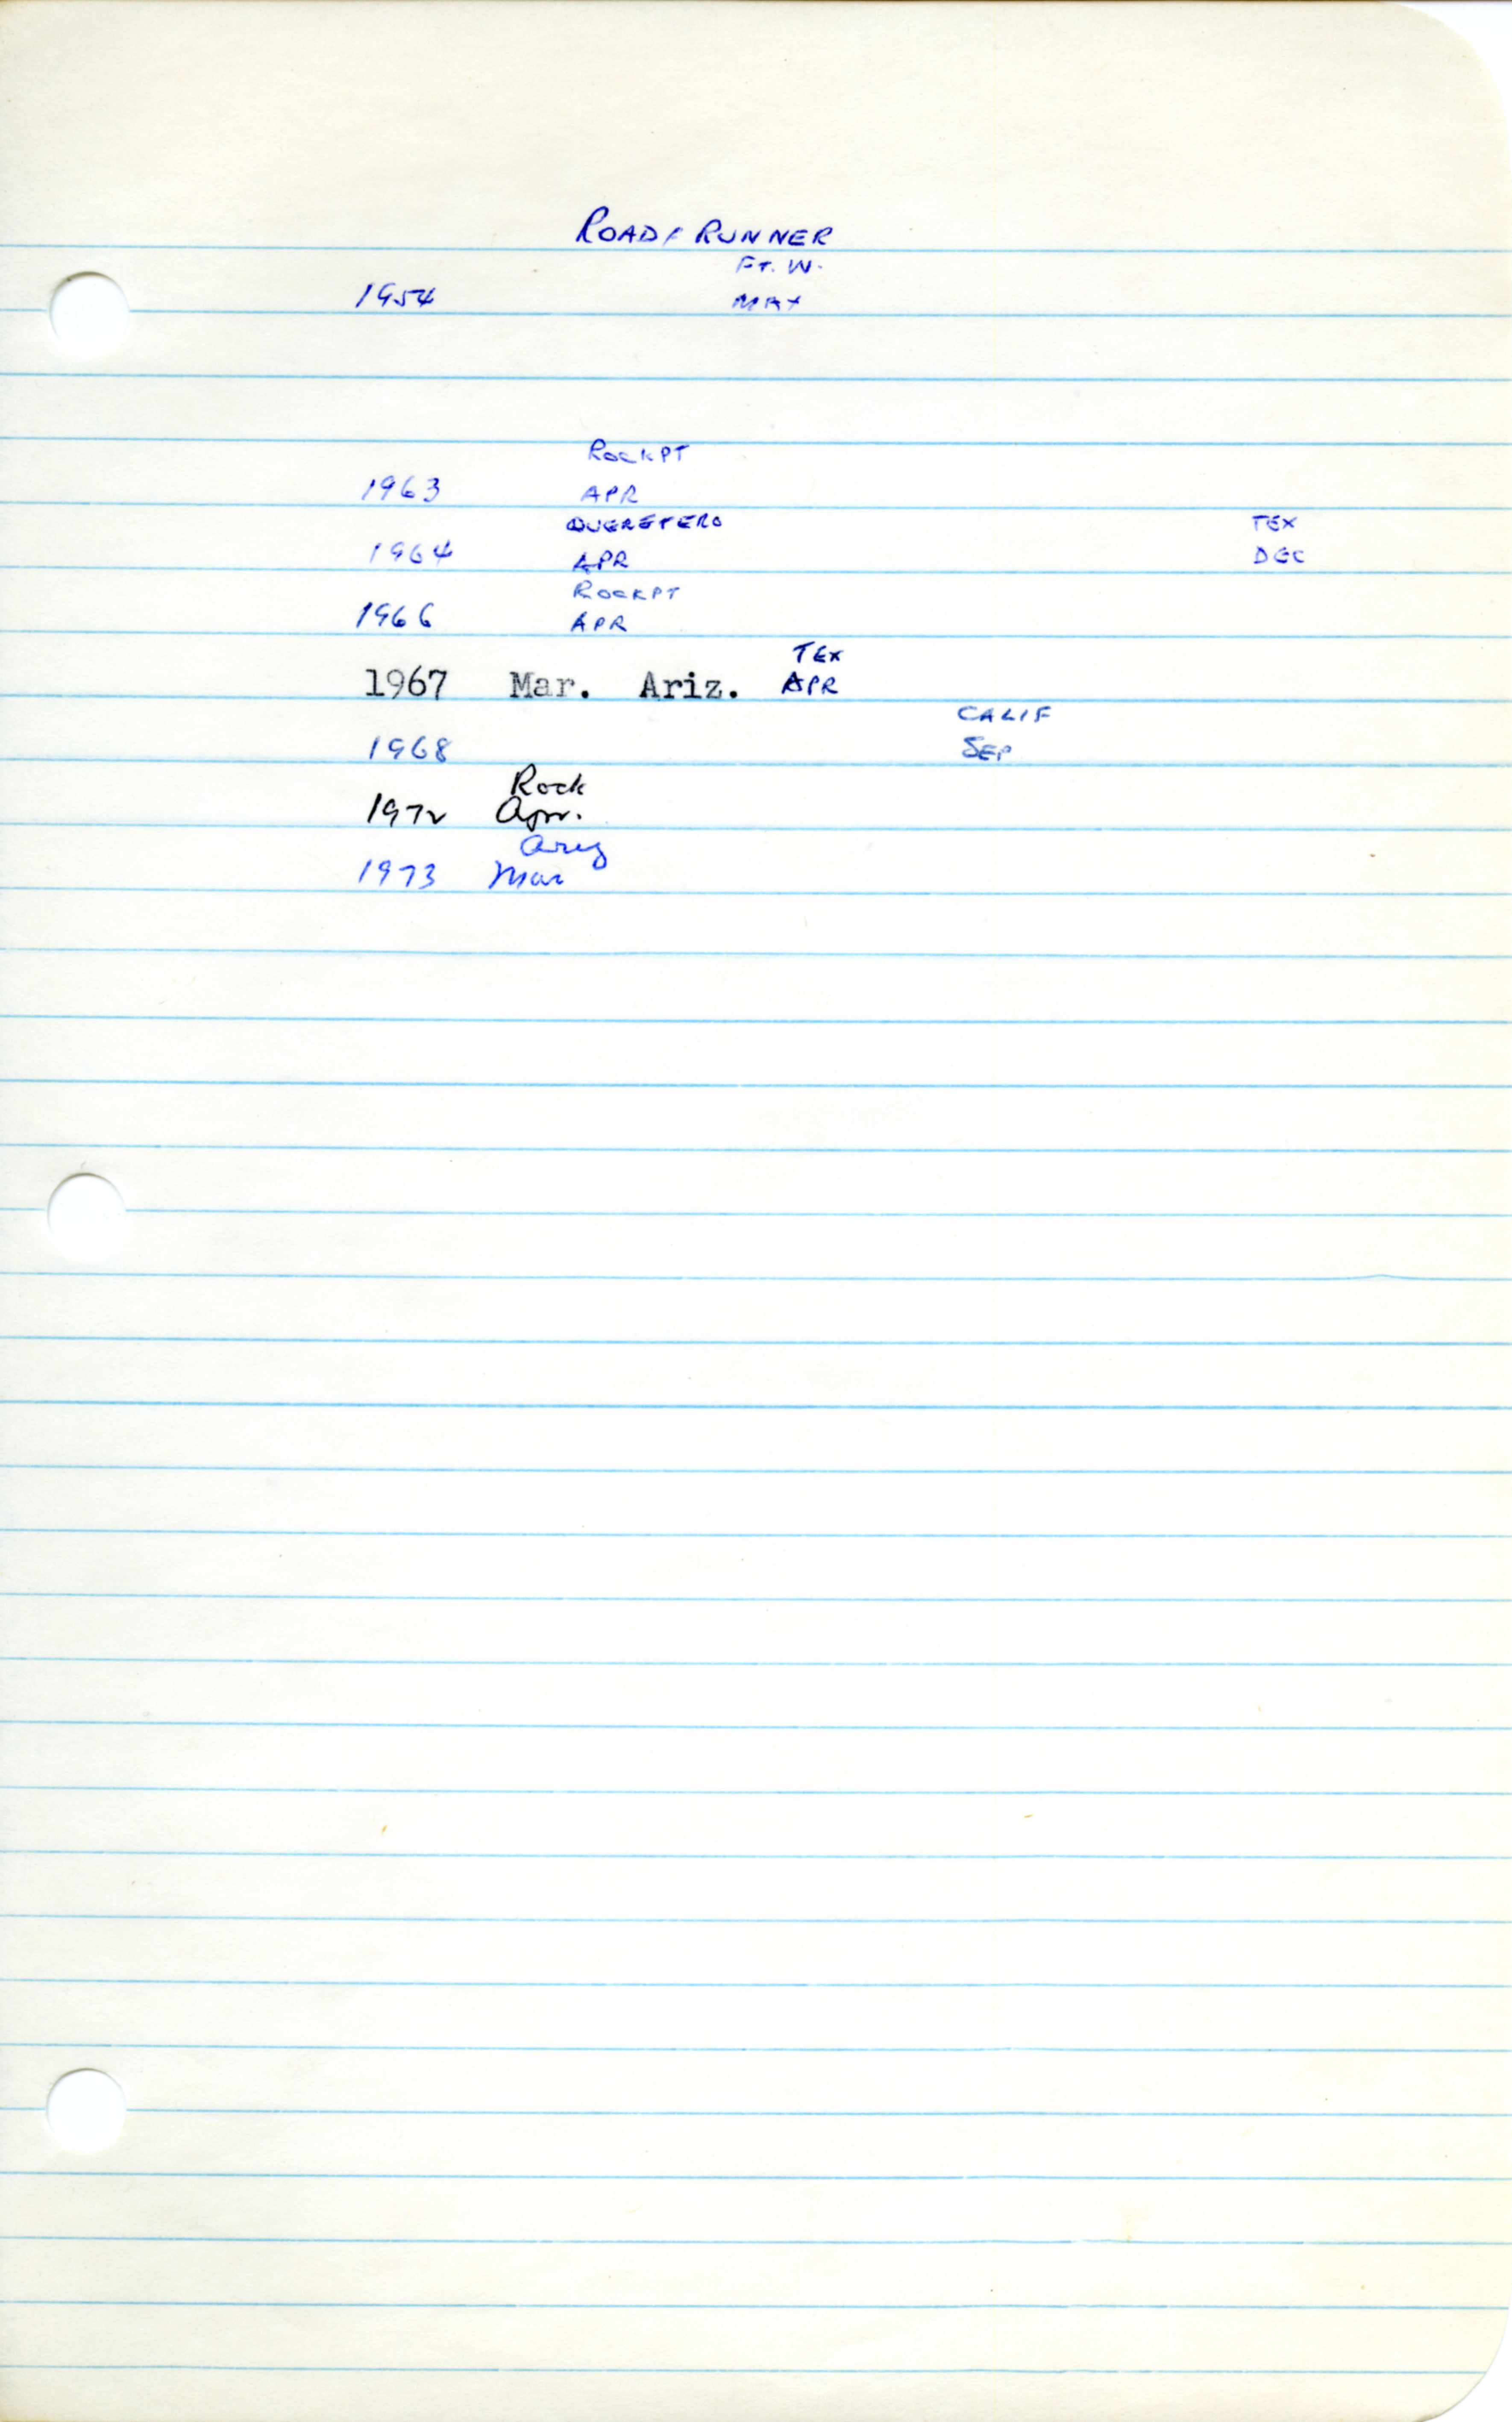 ROAD/RUNNER
FT. W.
1954 MAY
ROCKPT
1963 APR
QUERETERO TEX
1964 APR DEC
ROCKPT
1966 APR
TEX
1967 Mar. Ariz. APR
CALIF
1968 SEP
Rock
1972 Apr.
Ariz
1973 Mar